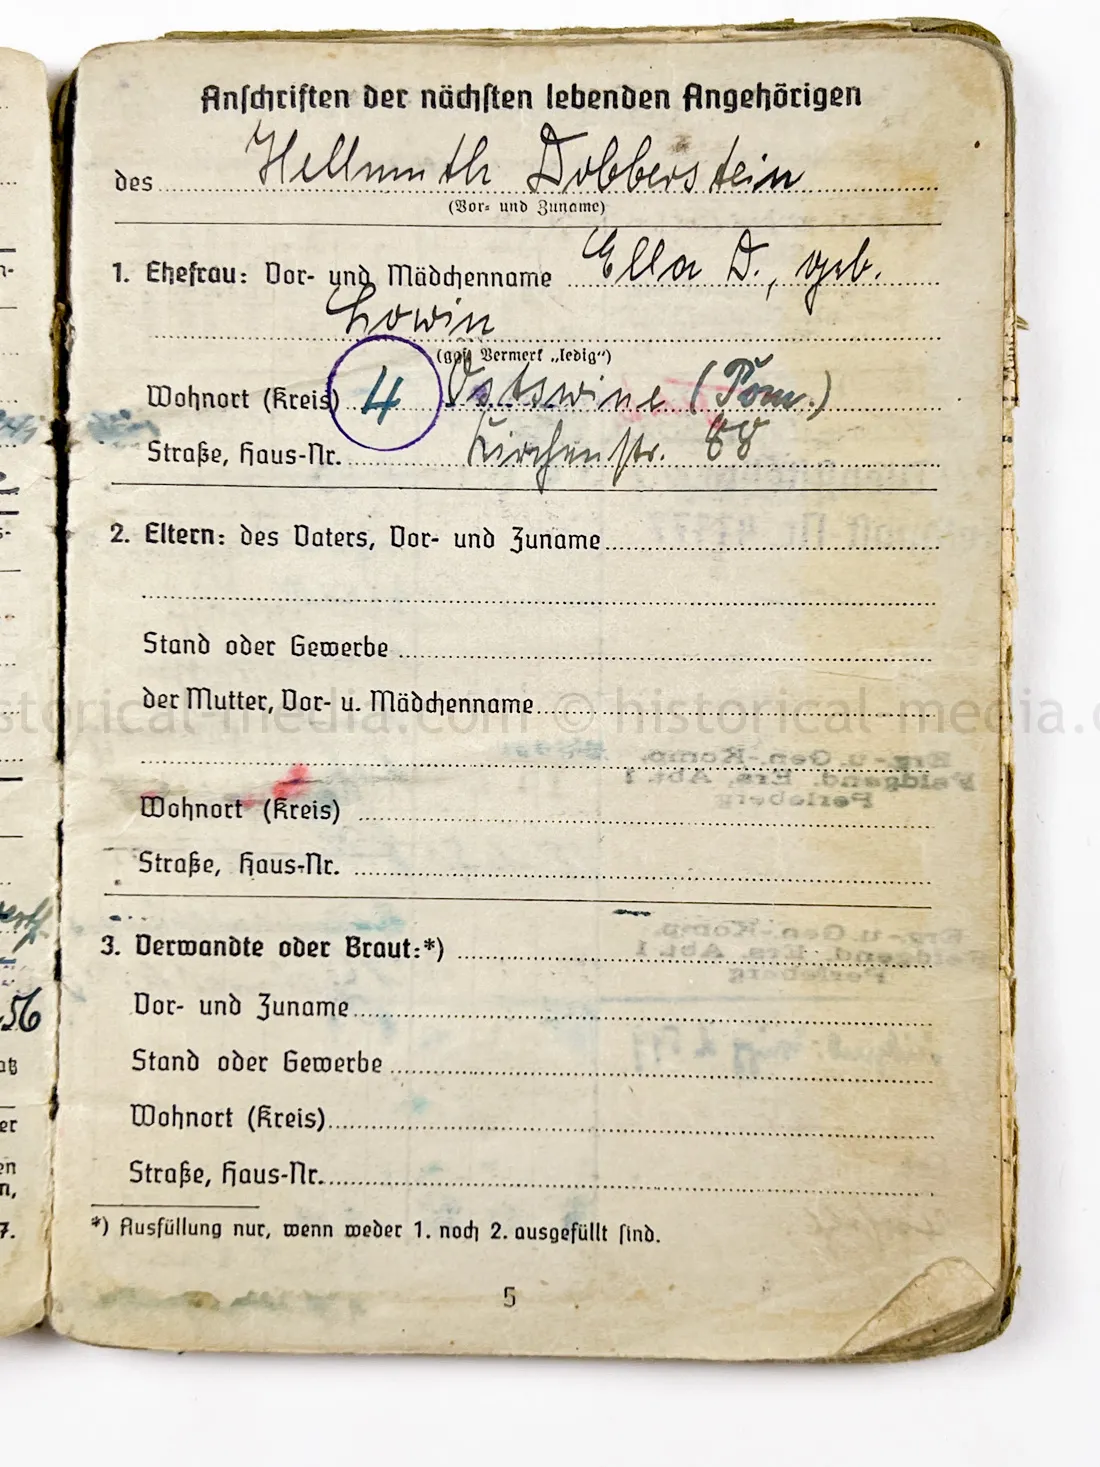 Anschriften der nächsten lebenden Angehörigen
des Hellmuth Dobberstein
(Vor- und Zuname)
1. Ehefrau: Vor- und Mädchenname Ella D., geb.
Lowin
(ggf. Vermerk „ledig“)
Wohnort (Kreis) 4 Ostswine (Pom.)
Straße, Haus-Nr. Kirchenstr. 88
2. Eltern: des Vaters, Vor- und Zuname
Stand oder Gewerbe
der Mutter, Vor- u. Mädchenname
historical-media.com © historical-media.
Wohnort (Kreis)
Straße, Haus-Nr.
3. Verwandte oder Braut:*)
Vor- und Zuname
Stand oder Gewerbe
Wohnort (Kreis)
Straße, Haus-Nr.
*) Ausfüllung nur, wenn weder 1. noch 2. ausgefüllt sind.
5
56